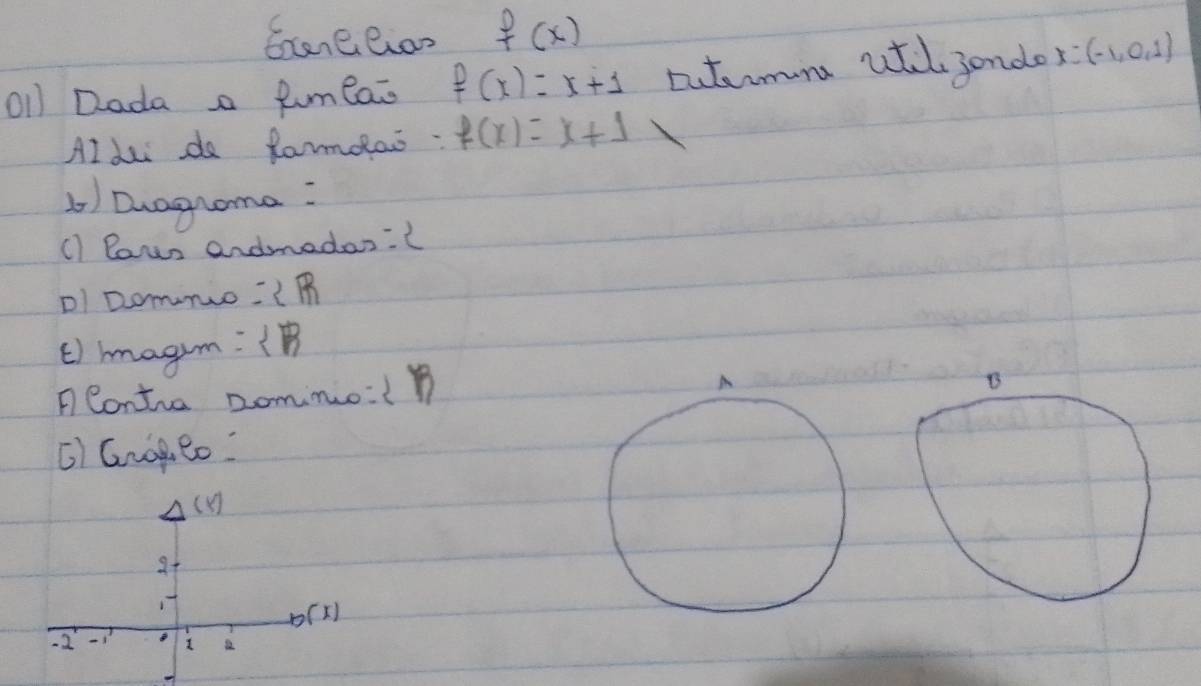 Exercícios f(x)
01) Dada a função f(x) = x+1 Determine utilizando x=(-1,0,1)
A) Lei de formação: f(x) = x+1
b) Diagrama =
C) Pares ordenados = {
D) Dominio = { R
E) Imagem = {
F) Contra Dominio = {
G) Gráfico =
A B
(Y)
2
1
(X)
-2 -1 0 1 2